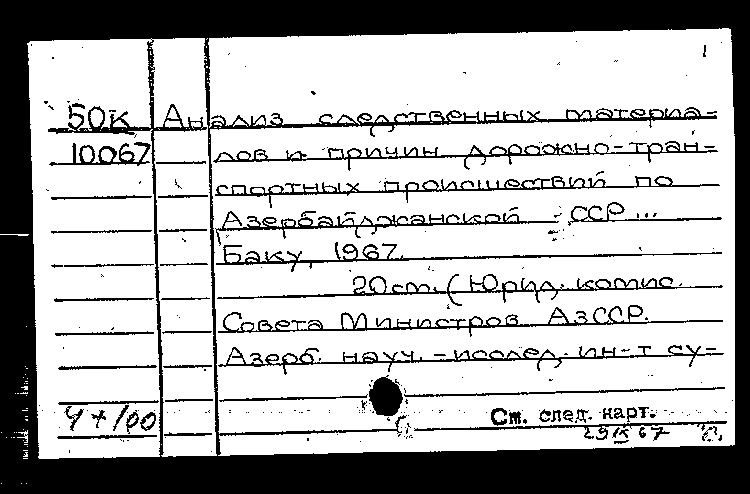 1
50к Анализ следственных материа=
10067 лов и причин дорожно-тран=
спортных происшествий по
Азербайджанской ССР...
Баку, 1967.
20см. (Юрид. комис.
Совета Министров АзССР.
Азерб. науч.-исслед. ин-т су=
Ч+100 См. след. карт.
29 IX 67